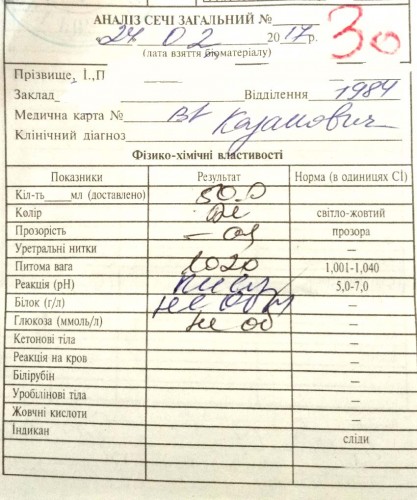 АНАЛІЗ СЕЧІ ЗАГАЛЬНИЙ №
30
24 02 2017 р.
(дата взяття біоматеріалу)
Прізвище, І.,П
Заклад Відділення 1984
Медична карта №
Клінічний діагноз
Фізико-хімічні властивості
Показники Результат Норма (в одиницях СІ)
Кіл-ть мл (доставлено) 50.0
Колір світло-жовтий
Прозорість прозора
Уретральні нитки –
Питома вага 1020 1,001-1,040
Реакція (рН) 5,0-7,0
Білок (г/л) не –
Глюкоза (ммоль/л) не об –
Кетонові тіла –
Реакція на кров –
Білірубін –
Уробілінові тіла –
Жовчні кислоти –
Індикан сліди